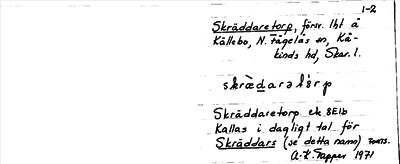 1-2
Skräddaretorp, försv. lht å
Källebo, N. Fågelås sn, Kå-
kinds hd, Skar. l.
skrädarətårp
Skräddaretorp ek 8E1b
Kallas i dagligt tal för
Skräddars (se detta namn)
A.-K. 1971